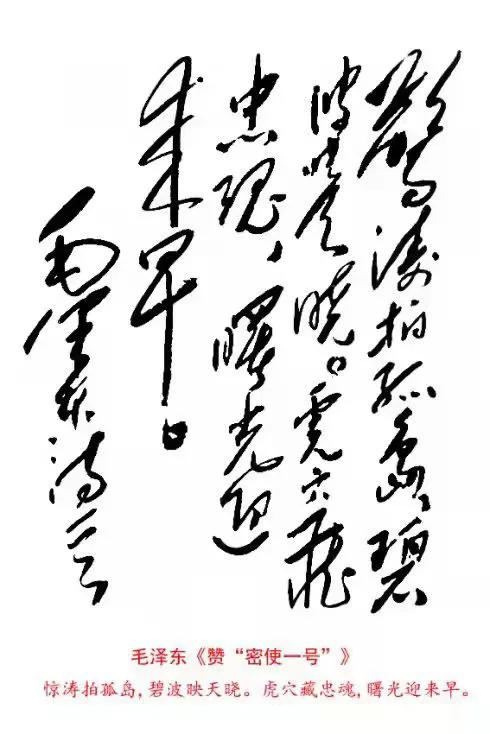 驚涛拍孤島,碧
波映天晓。虎穴藏
忠魂,曙光迎
来早。
毛泽东诗云
毛泽东《赞“密使一号”》
惊涛拍孤岛,碧波映天晓。虎穴藏忠魂,曙光迎来早。